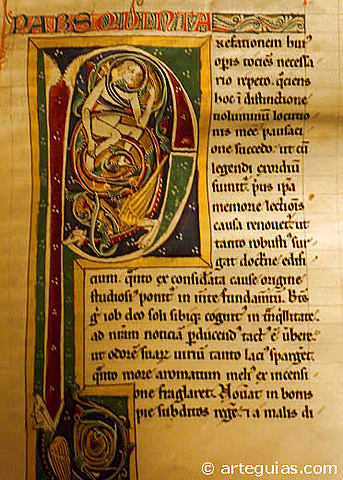 PARS QVINTA
refationem huiꝰ
opis tociēs necessa
rio repeto. qciens
hoc i distinctione
uoluminū locutio
nis mee pausaci
one succedo. ut cū
legendi exordiū
sumit. pius ipa
memorie lectionis
causa renouet. ut
tanto robusti sur
gat doctne edifi
cium. qnto ex considata cause origine
studiosi ponit in inte fundamtū. Bea
ꝰ iob deo soli sibiqꝫ cognit in tnqllitate.
ad nram noticiā pducend tact ē ubere.
ut odorē suaꝝ uiriū tanto laci sparget.
qnto more aromatum meli ex incensi
one fraglaret. Nouat in bonis
pie subditos rege. i a malis di
© arteguias.com